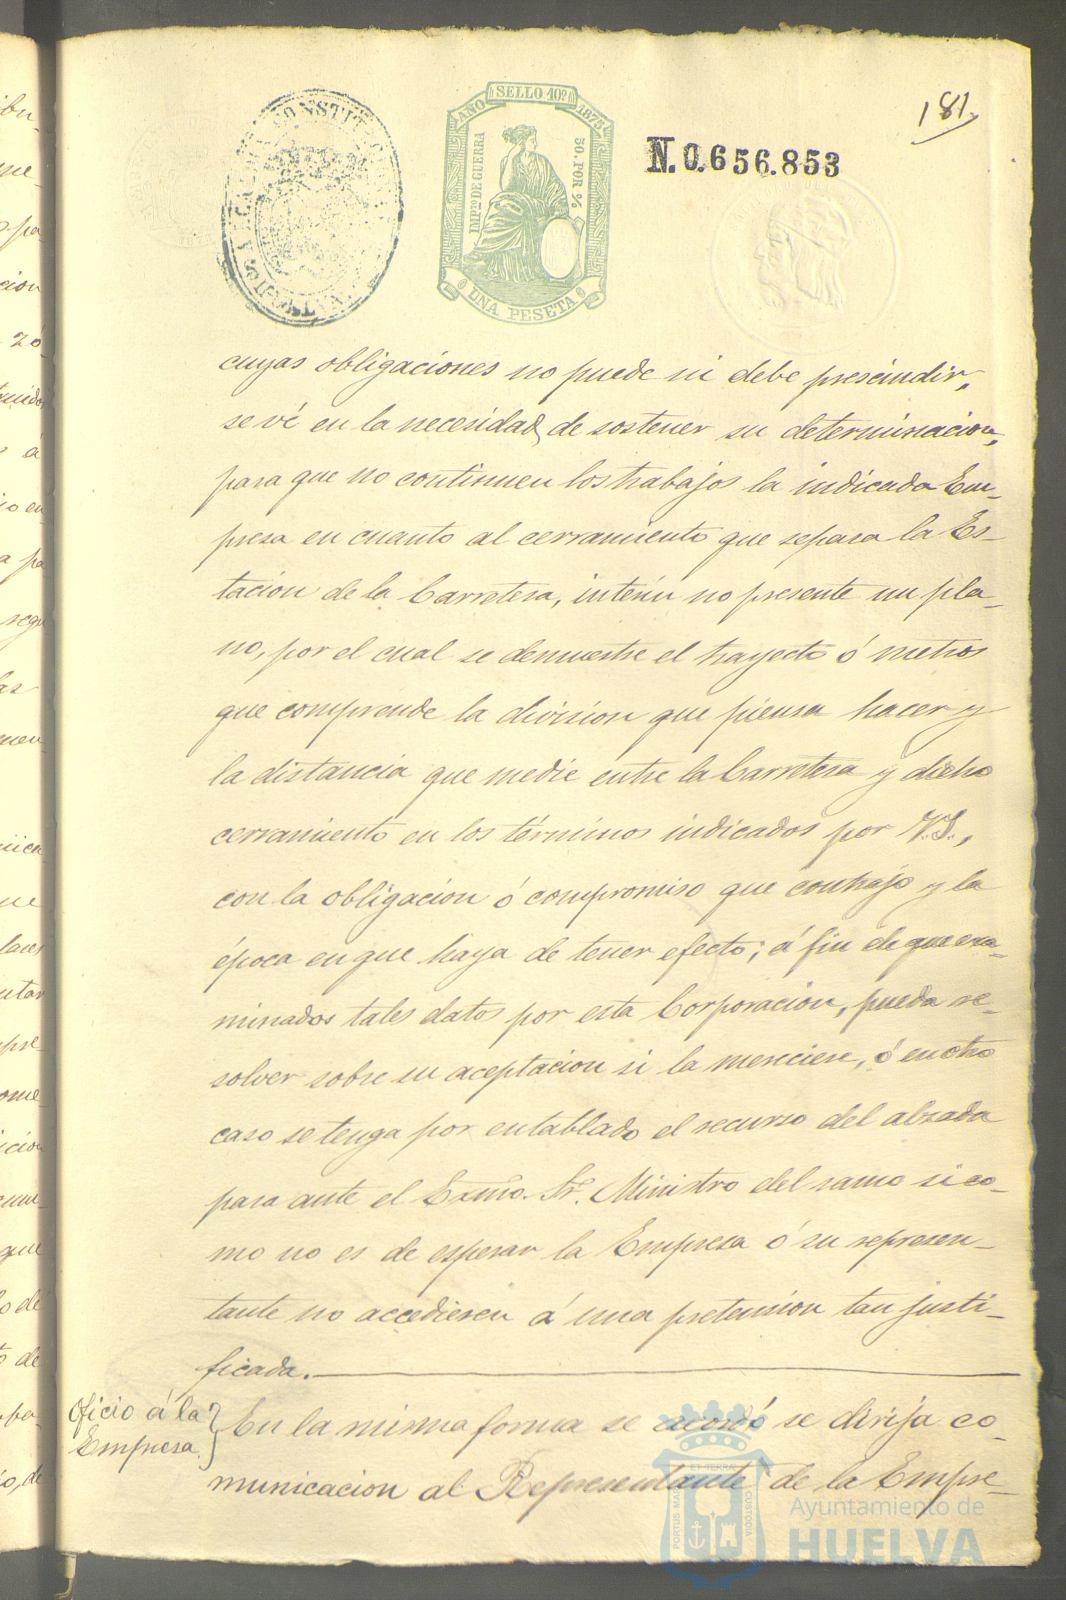 181.
SELLO 10º
AÑO 1875
IMPTO DE GUERRA
50. POR %
UNA PESETA
N. 0.656.853
cuyas obligaciones no puede ni debe prescindir,
se vé en la necesidad de sostener su determinacion,
para que no continuen los trabajos la indicada Em-
presa en cuanto al cerramiento que separa la Es-
tacion de la Carretera, interin no presente un pla-
no, por el cual se demuestre el trayecto ó metros
que comprende la division que piensa hacer y
la distancia que medie entre la Carretera y dicho
cerramiento en los términos indicados por V.S.,
con la obligacion ó compromiso que contrajo y la
época en que haya de tener efecto; á fin de que exa-
minados tales datos por esta Corporacion, pueda re-
solver sobre su aceptacion si la mereciere, ó en otro
caso se tenga por entablado el recurso del alzada
para ante el Exmo. Sr. Ministro del ramo si co-
mo no es de esperar la Empresa ó su represen-
tante no accedieren á una pretension tan justi-
ficada.
Oficio á la
Empresa.
En la misma forma se acordó se dirija co-
municacion al Representante de la Empre-
PORTUS MARIS ET TERRA CUSTODIA
Ayuntamiento de
HUELVA